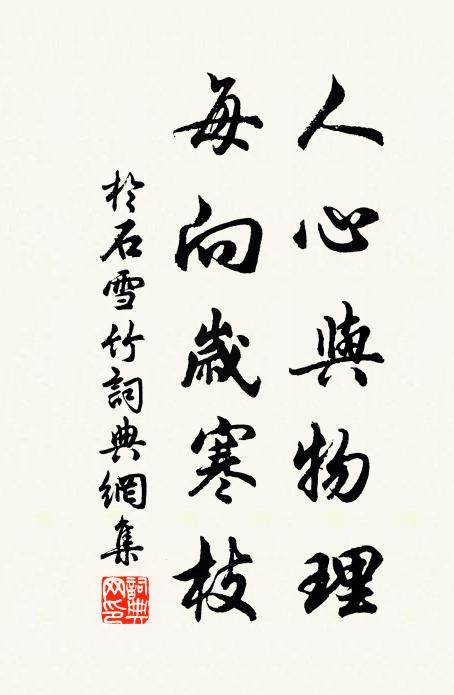 人心與物理
每向歲寒枝
於石雪竹詞典網集
詞典網印